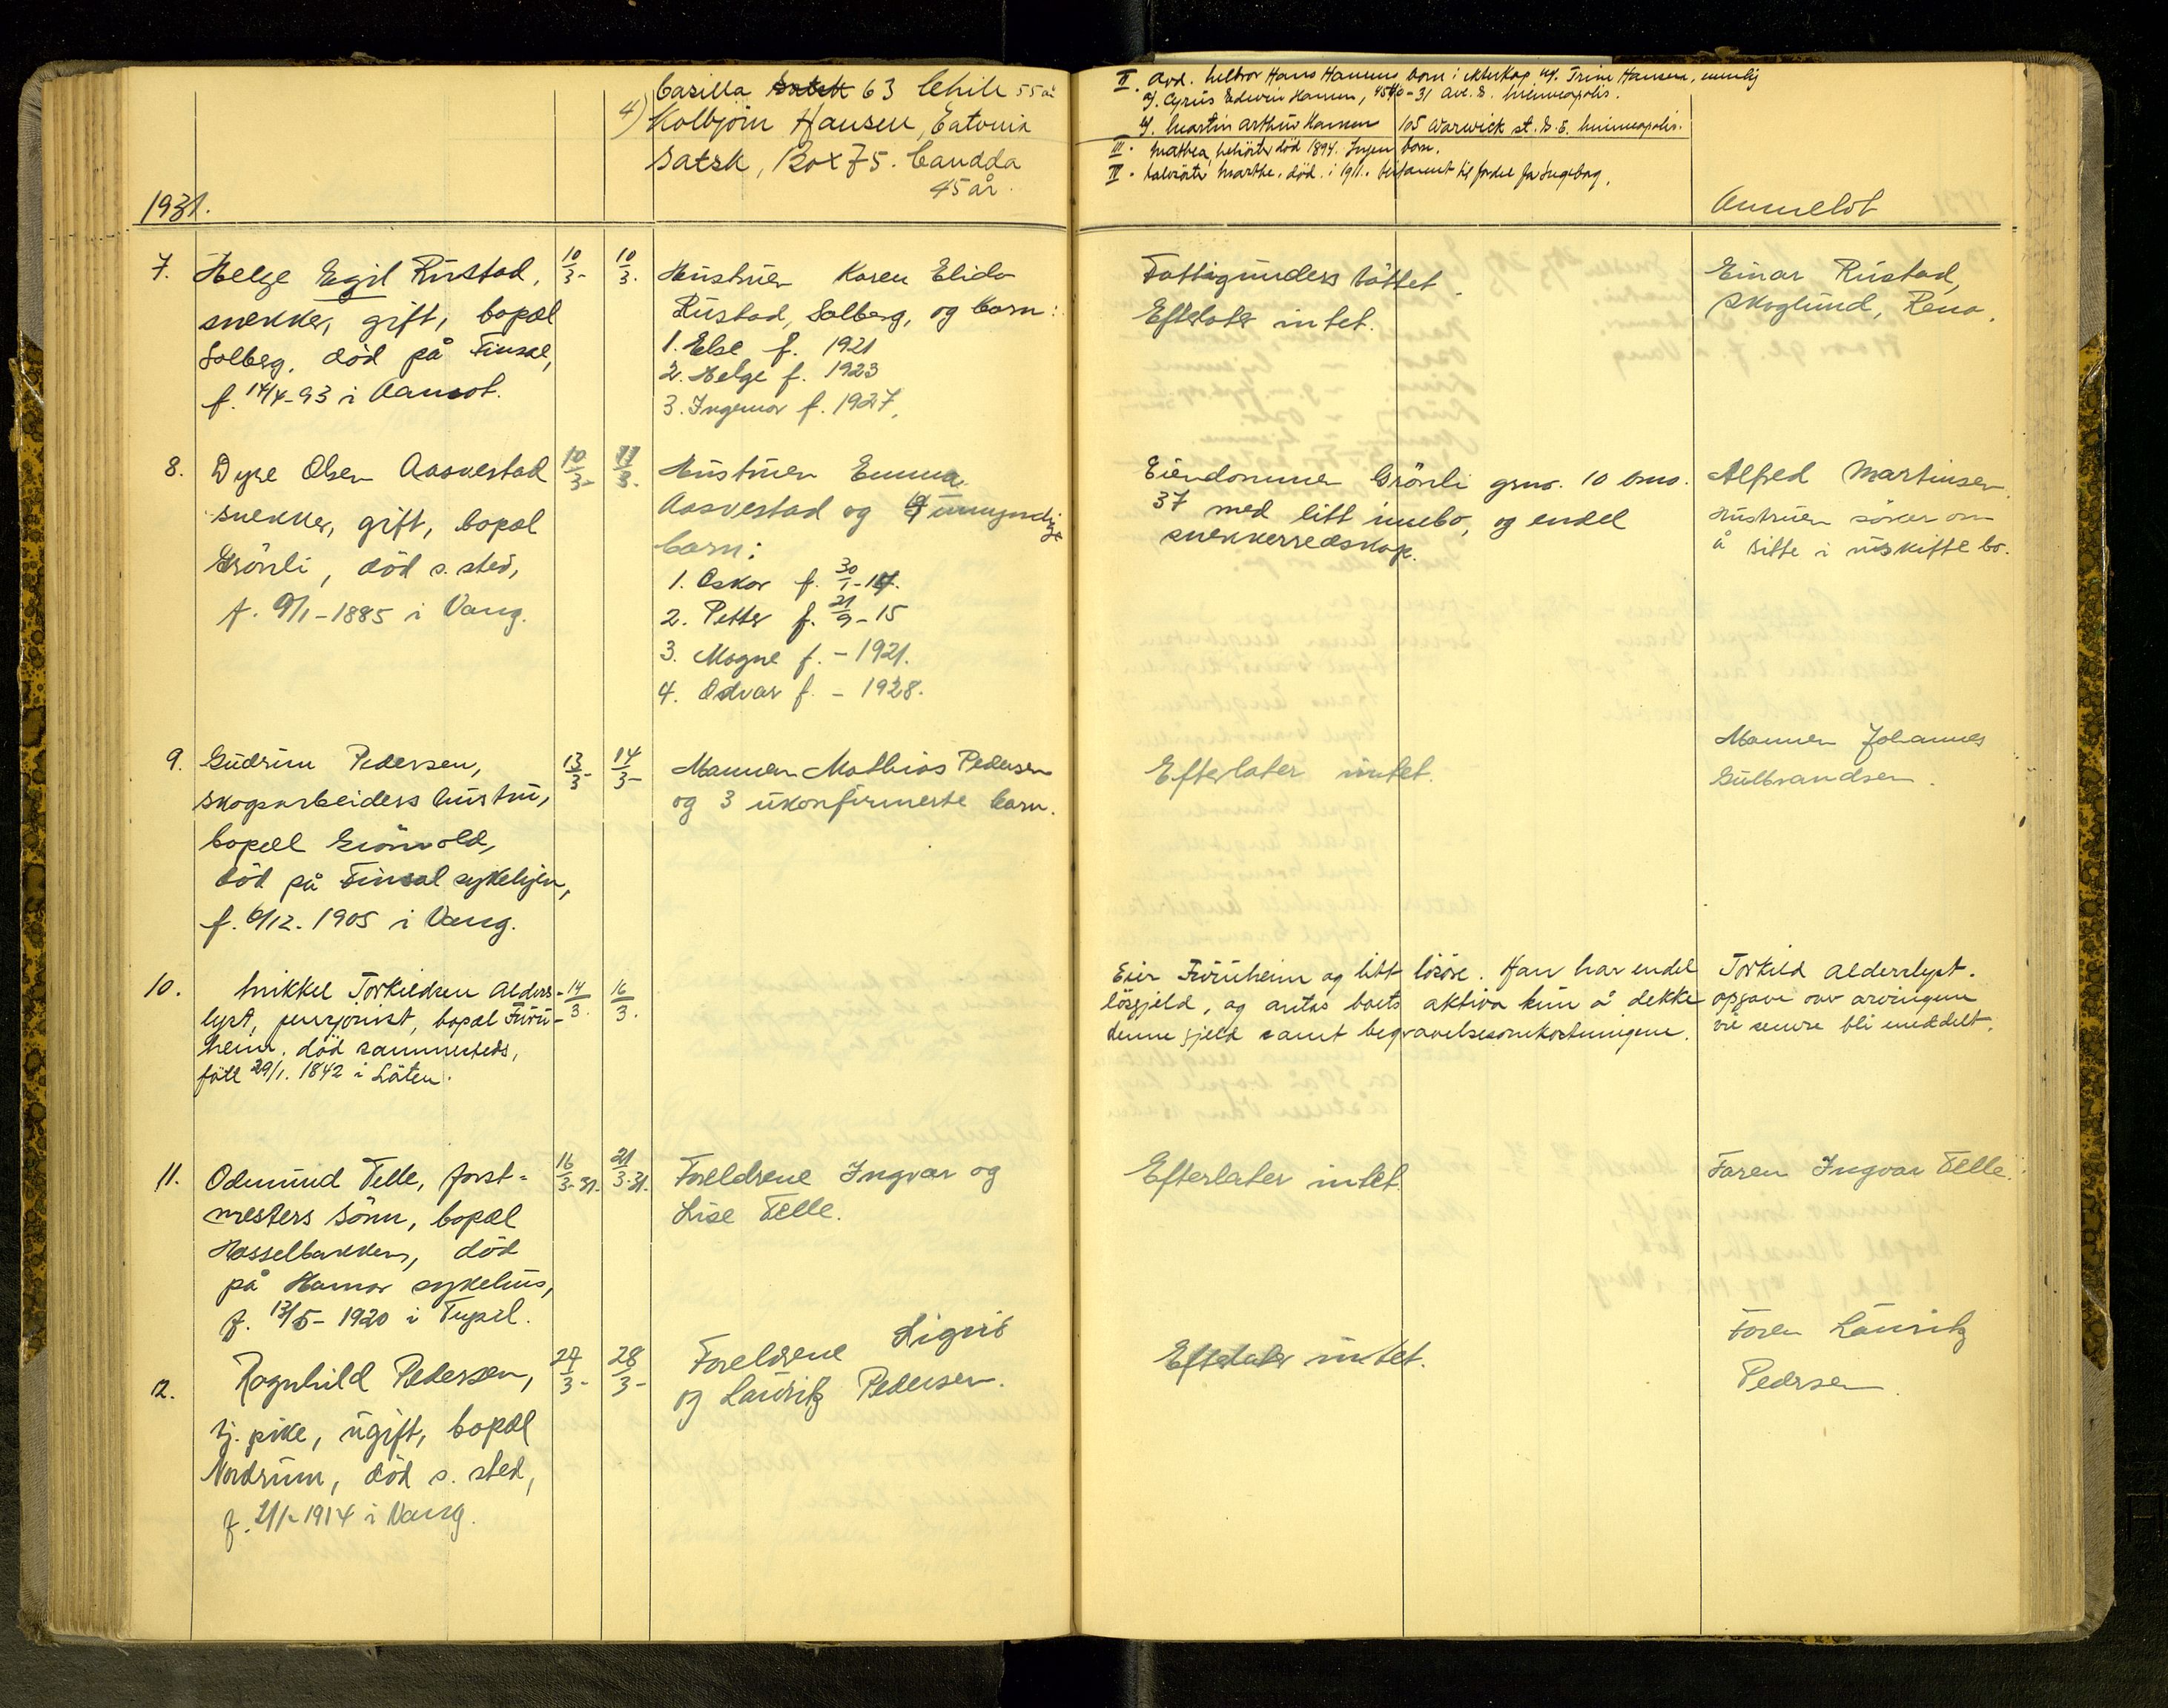 Casilla 63 Chile 55 år
4) Kolbjörn Hansen, Eatonia
Satsk, Box 75. Candda
45 år.
1931.
II. avd. helbror Hans Hansens barn i ekteskap m. Trine Hansen, nemlig
Cyrus Edwin Hansen, 4540-31 Ave. S. Minneapolis.
Martin Arthur Hansen 105 Warwick st. S.E. Minneapolis.
III. Mathea, helsöster död 1894. Ingen barn.
IV. halvsöster Marthe, död i 1911. til fordel for Ingeborg.
Anmeldt
7. Helge Egil Rustad,
snekker, gift, bopæl
Solberg, död på Finsal,
f. 14/4-93 i Aamot.
10/3-
10/3.
Hustruen Karen Elida
Rustad, Solberg, og barn:
1. Else f. 1921
2. Helge f. 1923
3. Ingemar f. 1927.
Fattigunderstöttet.
Efterlater intet.
Einar Rustad,
Skoglund, Rena.
8. Dyre Olsen Aasvestad
snekker, gift, bopæl
Grönli, död s. sted,
f. 9/1-1885 i Vang.
10/3-
11/3.
Hustruen Emma
Aasvestad og 4 umyndige
barn:
1. Oskar f. 30/1-14.
2. Petter f. 21/9-15
3. Magne f. - 1921.
4. Odvar f. - 1928.
Eiendommen Grönli gno. 10 bno.
37 med litt innbo, og endel
snekkerredskap.
Alfred Martinsen.
Hustruen söker om
å sitte i uskifte bo.
9. Gudrun Pedersen,
skogsarbeiders hustru,
bopæl Grönvold,
död på Finsal sykehjem,
f. 6/12. 1905 i Vang.
13/3-
14/3-
Mannen Mathias Pedersen
og 3 ukonfirmerte barn.
Efterlater intet.
Mannen Johannes
Gulbrandsen.
10. Mikkel Torkildsen Alders-
lyst, pensjonist, bopæl Furu-
heim, död sammesteds,
född 29/1. 1842 i Löten.
14/3.
16/3.
Eier Furuheim og litt lösöre. Han har endel
lösgjeld, og antas boets aktiva kun å dekke
denne gjeld samt begravelsesomkostningene.
Torkild Alderslyst.
opgave over arvingene
vil senere bli meddelt.
11. Odmund Telle, forst-
mesters sönn, bopæl
Hasselbakken, död
på Hamar sykehus,
f. 13/5-1920 i Tynsæt.
16/3-31.
21/3-31.
Foreldrene Ingvar og
Lise Telle.
Efterlater intet.
Faren Ingvar Telle.
12. Ragnhild Pedersen,
tj. pike, ugift, bopæl
Nordrum, död s. sted,
f. 21/-1914 i Vang.
27/3-
28/3-
Foreldrene Sigrid
og Lauritz Pedersen.
Efterlater intet.
Faren Lauritz
Pedersen.